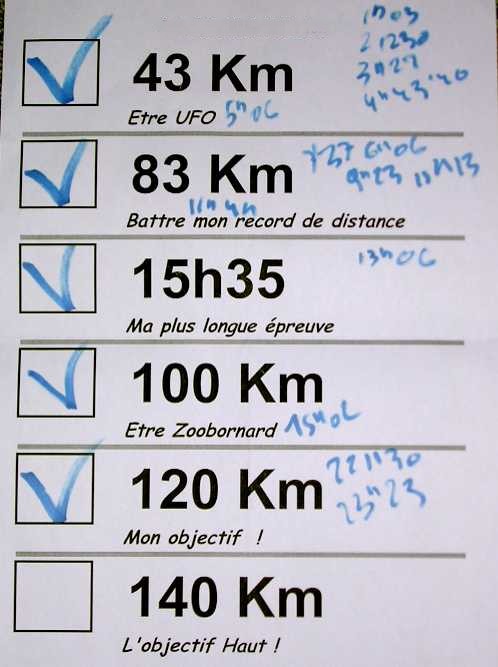 1h03
2h30
3h27
43 Km
4h43'40
Etre UFO 5h06
83 Km
6h06
9h23 11h13
11h44
Battre mon record de distance
15h35
13h06
Ma plus longue épreuve
100 Km
Etre Zoobornard 15h06
120 Km
22h30
23h23
Mon objectif !
140 Km
L'objectif Haut !